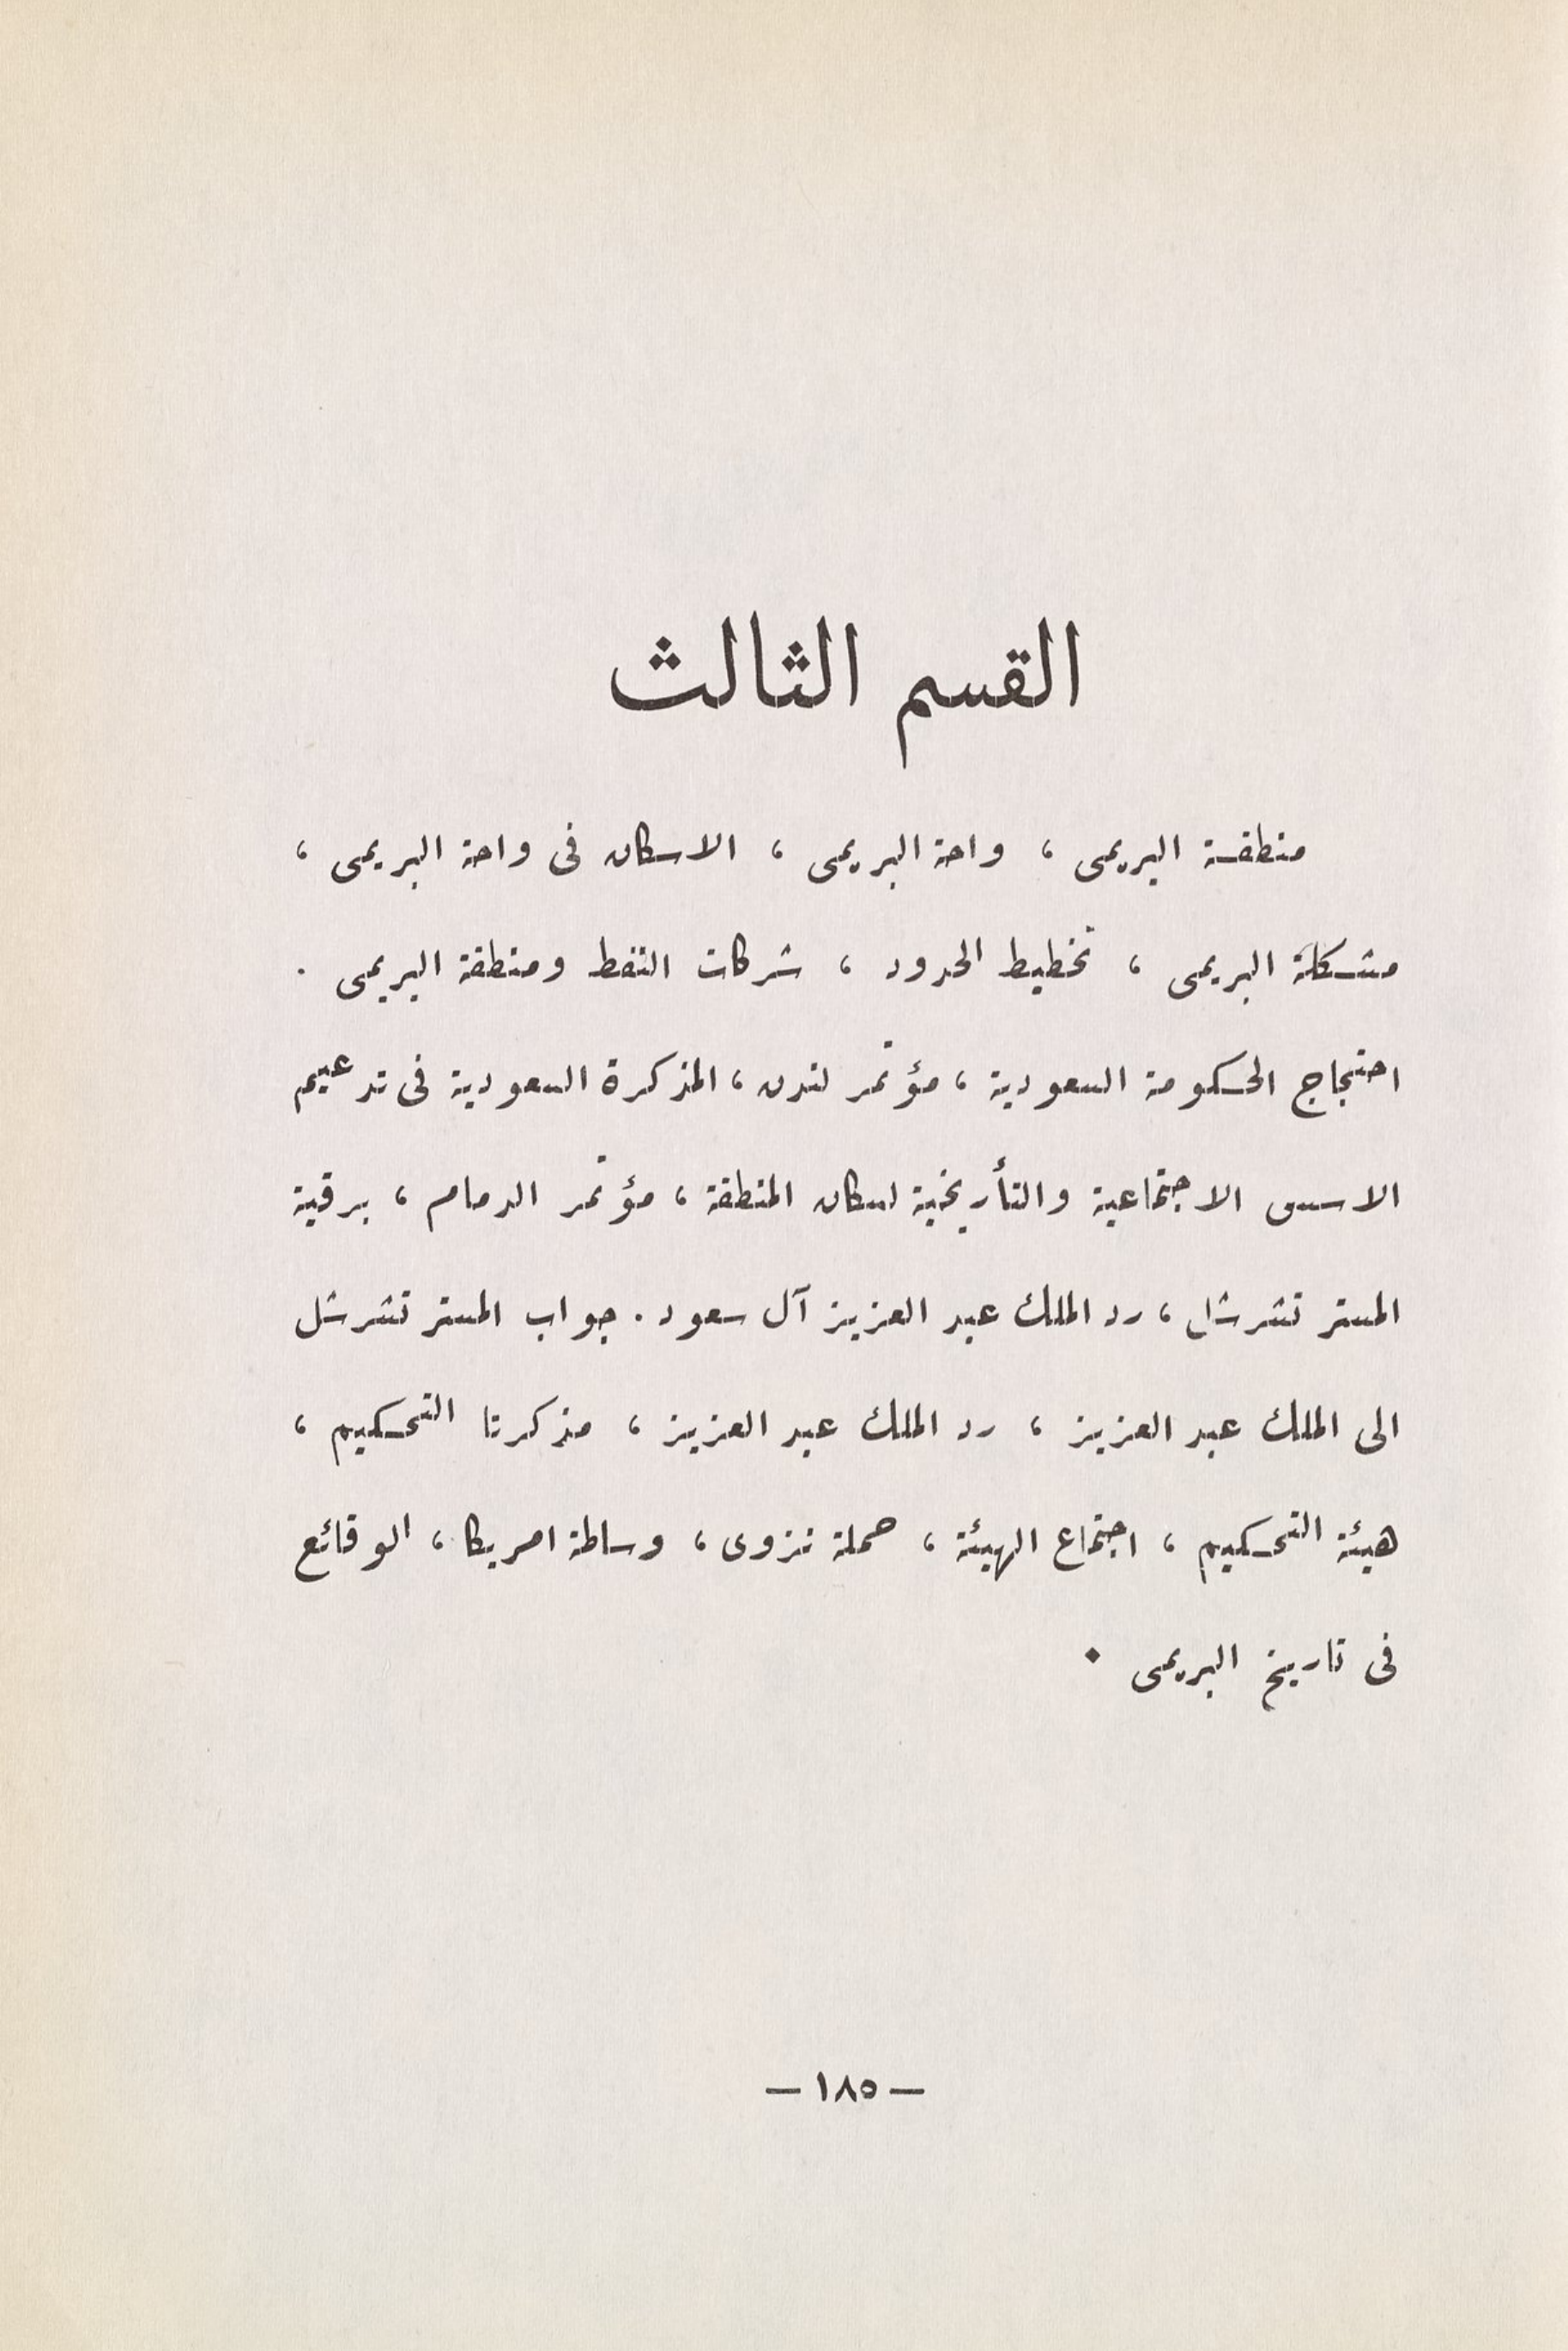 القسم الثالث
منطقة البريمى ، واحة البريمى ، الاسكان فى واحة البريمى ،
مشكلة البريمى ، تخطيط الحدود ، شركات النفط ومنطقة البريمى .
احتجاج الحكومة السعودية ، مؤتمر لندن ، المذكرة السعودية فى تدعيم
الاسس الاجتماعية والتأريخية لسكان المنطقة ، مؤتمر الدمام ، برقية
المستر تشرشل ، رد الملك عبد العزيز آل سعود . جواب المستر تشرشل
الى الملك عبد العزيز ، رد الملك عبد العزيز ، مذكرتا التحكيم ،
هيئة التحكيم ، اجتماع الهيئة ، حملة نزوى ، وساطة امريكا ، الوقائع
فى تاريخ البريمى .
— ١٨٥ —